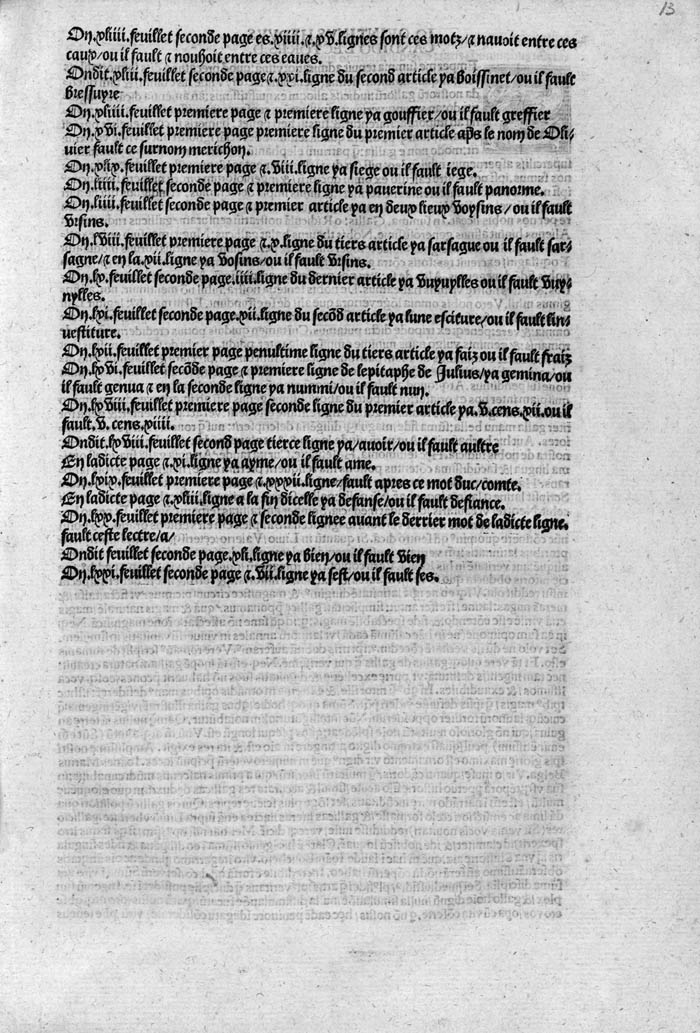 13
On.xliiii.feuillet seconde page es.xiiii.⁊.xv.lignes sont ces motz/⁊ nauoit entre ces
caux/ou il fault ⁊ nouhoit entre ces eaues.
Ondit.xliii.feuillet seconde page ⁊.xxi.ligne du second article ya Boissinet/ou il fault
bressuyre
On.xliiii.feuillet premiere page ⁊ premiere ligne ya gouffier/ou il fault greffier
On.xvi.feuillet premiere page premiere ligne du premier article aps le nom de Oli-
uier fault ce surnom merichon.
On.xlix.feuillet premiere page ⁊.viii.ligne ya siege ou il fault iege.
On.liiii.feuillet seconde page ⁊ premiere ligne ya pauerine ou il fault panorme.
On.liiii.feuillet seconde page ⁊ premier article ya en deux lieux voysins/ou il fault
vrsins.
On.lviii.feuillet premiere page ⁊.x.ligne du tiers article ya sarsague ou il fault sar-
sagne/⁊ en la.xii.ligne ya vosins/ou il fault vrsins.
On.lx.feuillet seconde page.iiii.ligne du dernier article ya vuyuylles ou il fault vuy-
nylles.
On.lxi.feuillet seconde page.xii.ligne du secōd article ya lune esciture/ou il fault lin-
uestiture.
On.lxii.feuillet premier page penultime ligne du tiers article ya faiz ou il fault fraiz
On.lxvi.feuillet secōde page ⁊ premiere ligne de lepitaphe de Julius/ya gemina/ou
il fault genua ⁊ en la seconde ligne ya nummi/ou il fault nun.
On.lxviii.feuillet premiere page seconde ligne du premier article ya.v.cens.xii.ou il
fault.v.cens.xiiii.
Ondit.lxviii.feuillet second page tierce ligne ya/auoir/ou il fault aultre
En ladicte page ⁊.xi.ligne ya ayme/ou il fault ame.
On.lxix.feuillet premiere page ⁊.xxxii.ligne/fault apres ce mot duc/comte.
En ladicte page ⁊.xliii.ligne a la fin dicelle ya defanse/ou il fault defiance.
On.lxx.feuillet premiere page ⁊ seconde lignee auant le derrier mot de ladicte ligne.
fault ceste lectre/a/
Ondit feuillet seconde page.xli.ligne ya bien/ou il fault vien
On.lxxi.feuillet seconde page ⁊.vii.ligne ya sest/ou il fault ses.